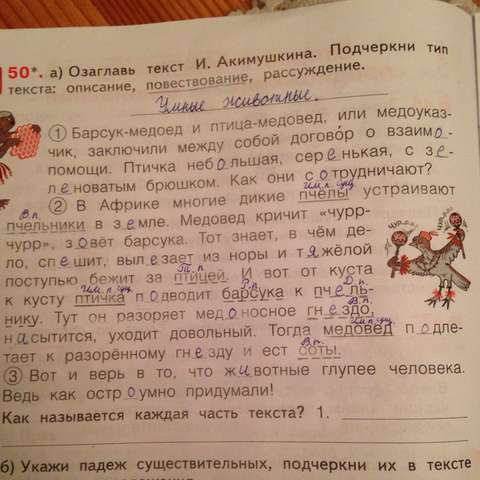 50*. а) Озаглавь текст И. Акимушкина. Подчеркни тип
текста: описание, повествование, рассуждение.
Умные животные.
① Барсук-медоед и птица-медовед, или медоуказ-
чик, заключили между собой договор о взаимо-
помощи. Птичка небольшая, серенькая, с зе-
леноватым брюшком. Как они сотрудничают?
им.п. сущ.
② В Африке многие дикие пчёлы устраивают
В.п.
пчельники в земле. Медовед кричит «чурр-
чурр», зовёт барсука. Тот знает, в чём де-
ло, спешит, вылезает из норы и тяжёлой
Т.п.
поступью бежит за птицей. И вот от куста
им.п. сущ. Р.п. Д.п.
к кусту птичка подводит барсука к пчель-
В.п.
нику. Тут он разоряет медоносное гнездо,
им.п. сущ.
насытится, уходит довольный. Тогда медовед подле-
В.п.
тает к разорённому гнезду и ест соты.
③ Вот и верь в то, что животные глупее человека.
Ведь как остроумно придумали!
Как называется каждая часть текста? 1.
б) Укажи падеж существительных, подчеркни их в тексте